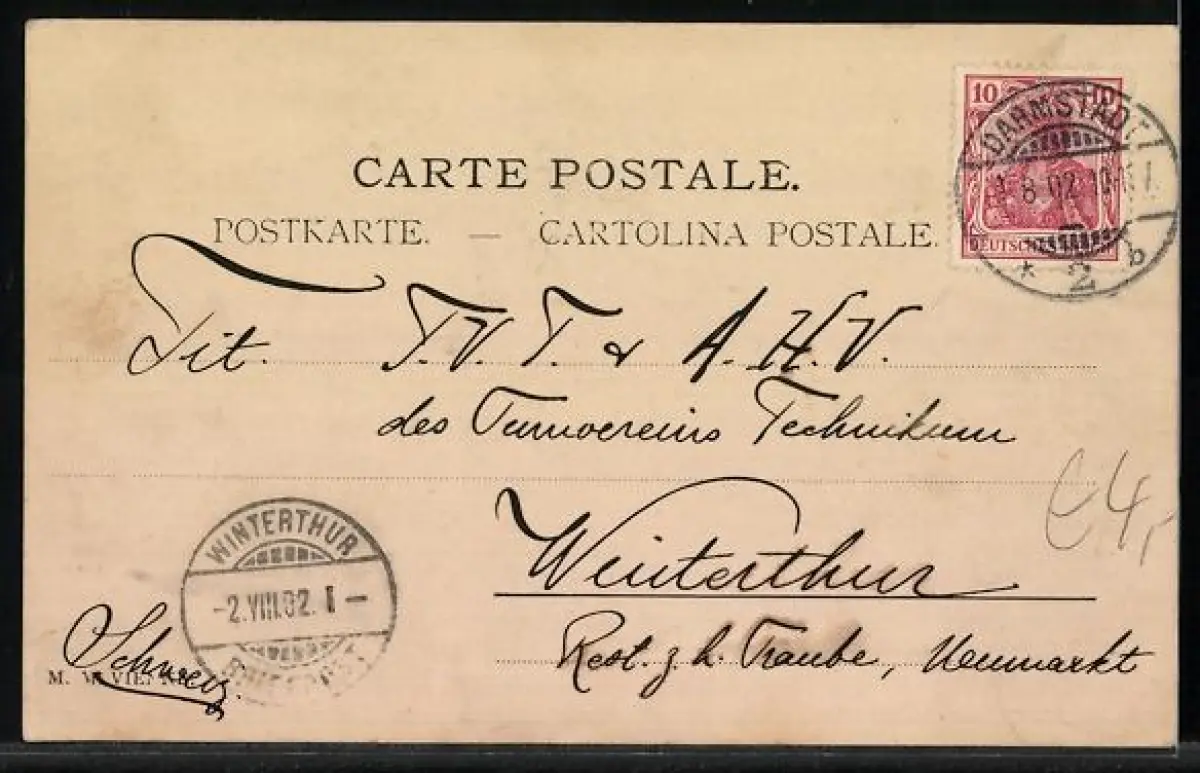 10 10
DARMSTADT
1.8.02.10-11
DEUTSCHES
* 2 b
CARTE POSTALE.
POSTKARTE. — CARTOLINA POSTALE.
Tit. T.V.T. & A.H.V.
des Turnvereins Technikum
€4,-
Winterthur
WINTERTHUR
-2.VIII.02. I -
Rest. z. h. Traube, Neumarkt
Schweiz.
M. M. VIE